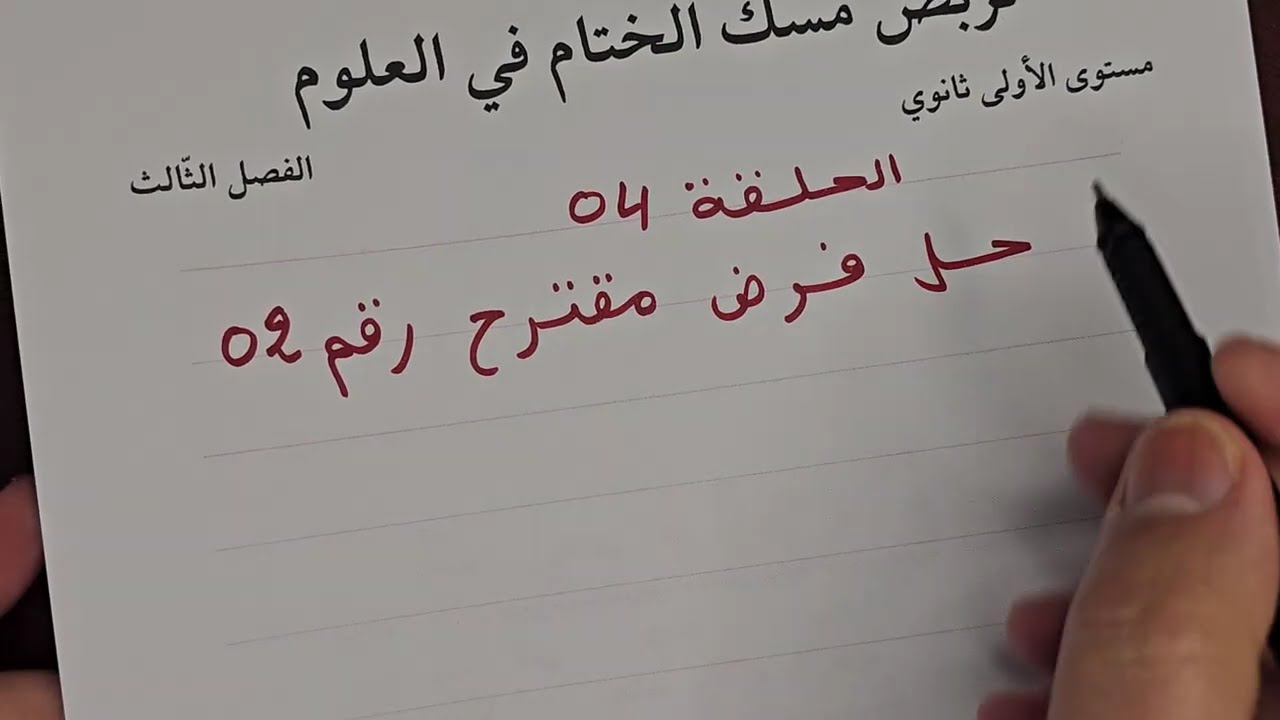 تربص مسك الختام في العلوم
مستوى الأولى ثانوي
الفصل الثّالث
الحلقة 04
حل فرض مقترح رقم 02